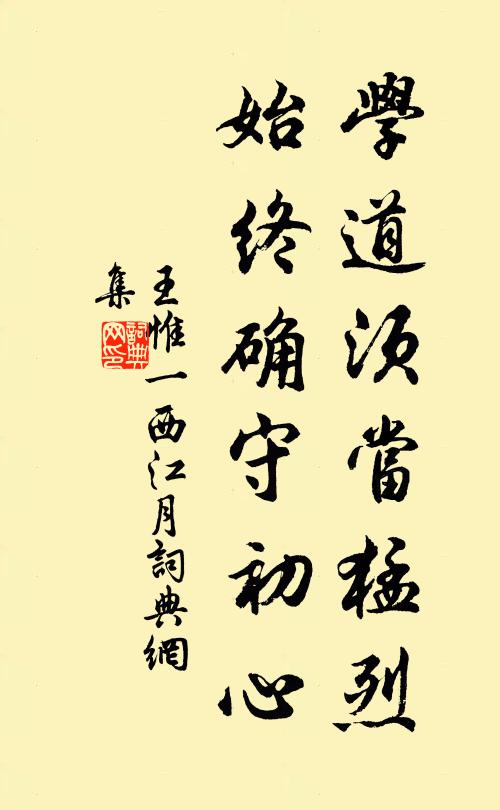 學道須當猛烈
始终确守初心
王惟一西江月詞典網
集
詞典
网印